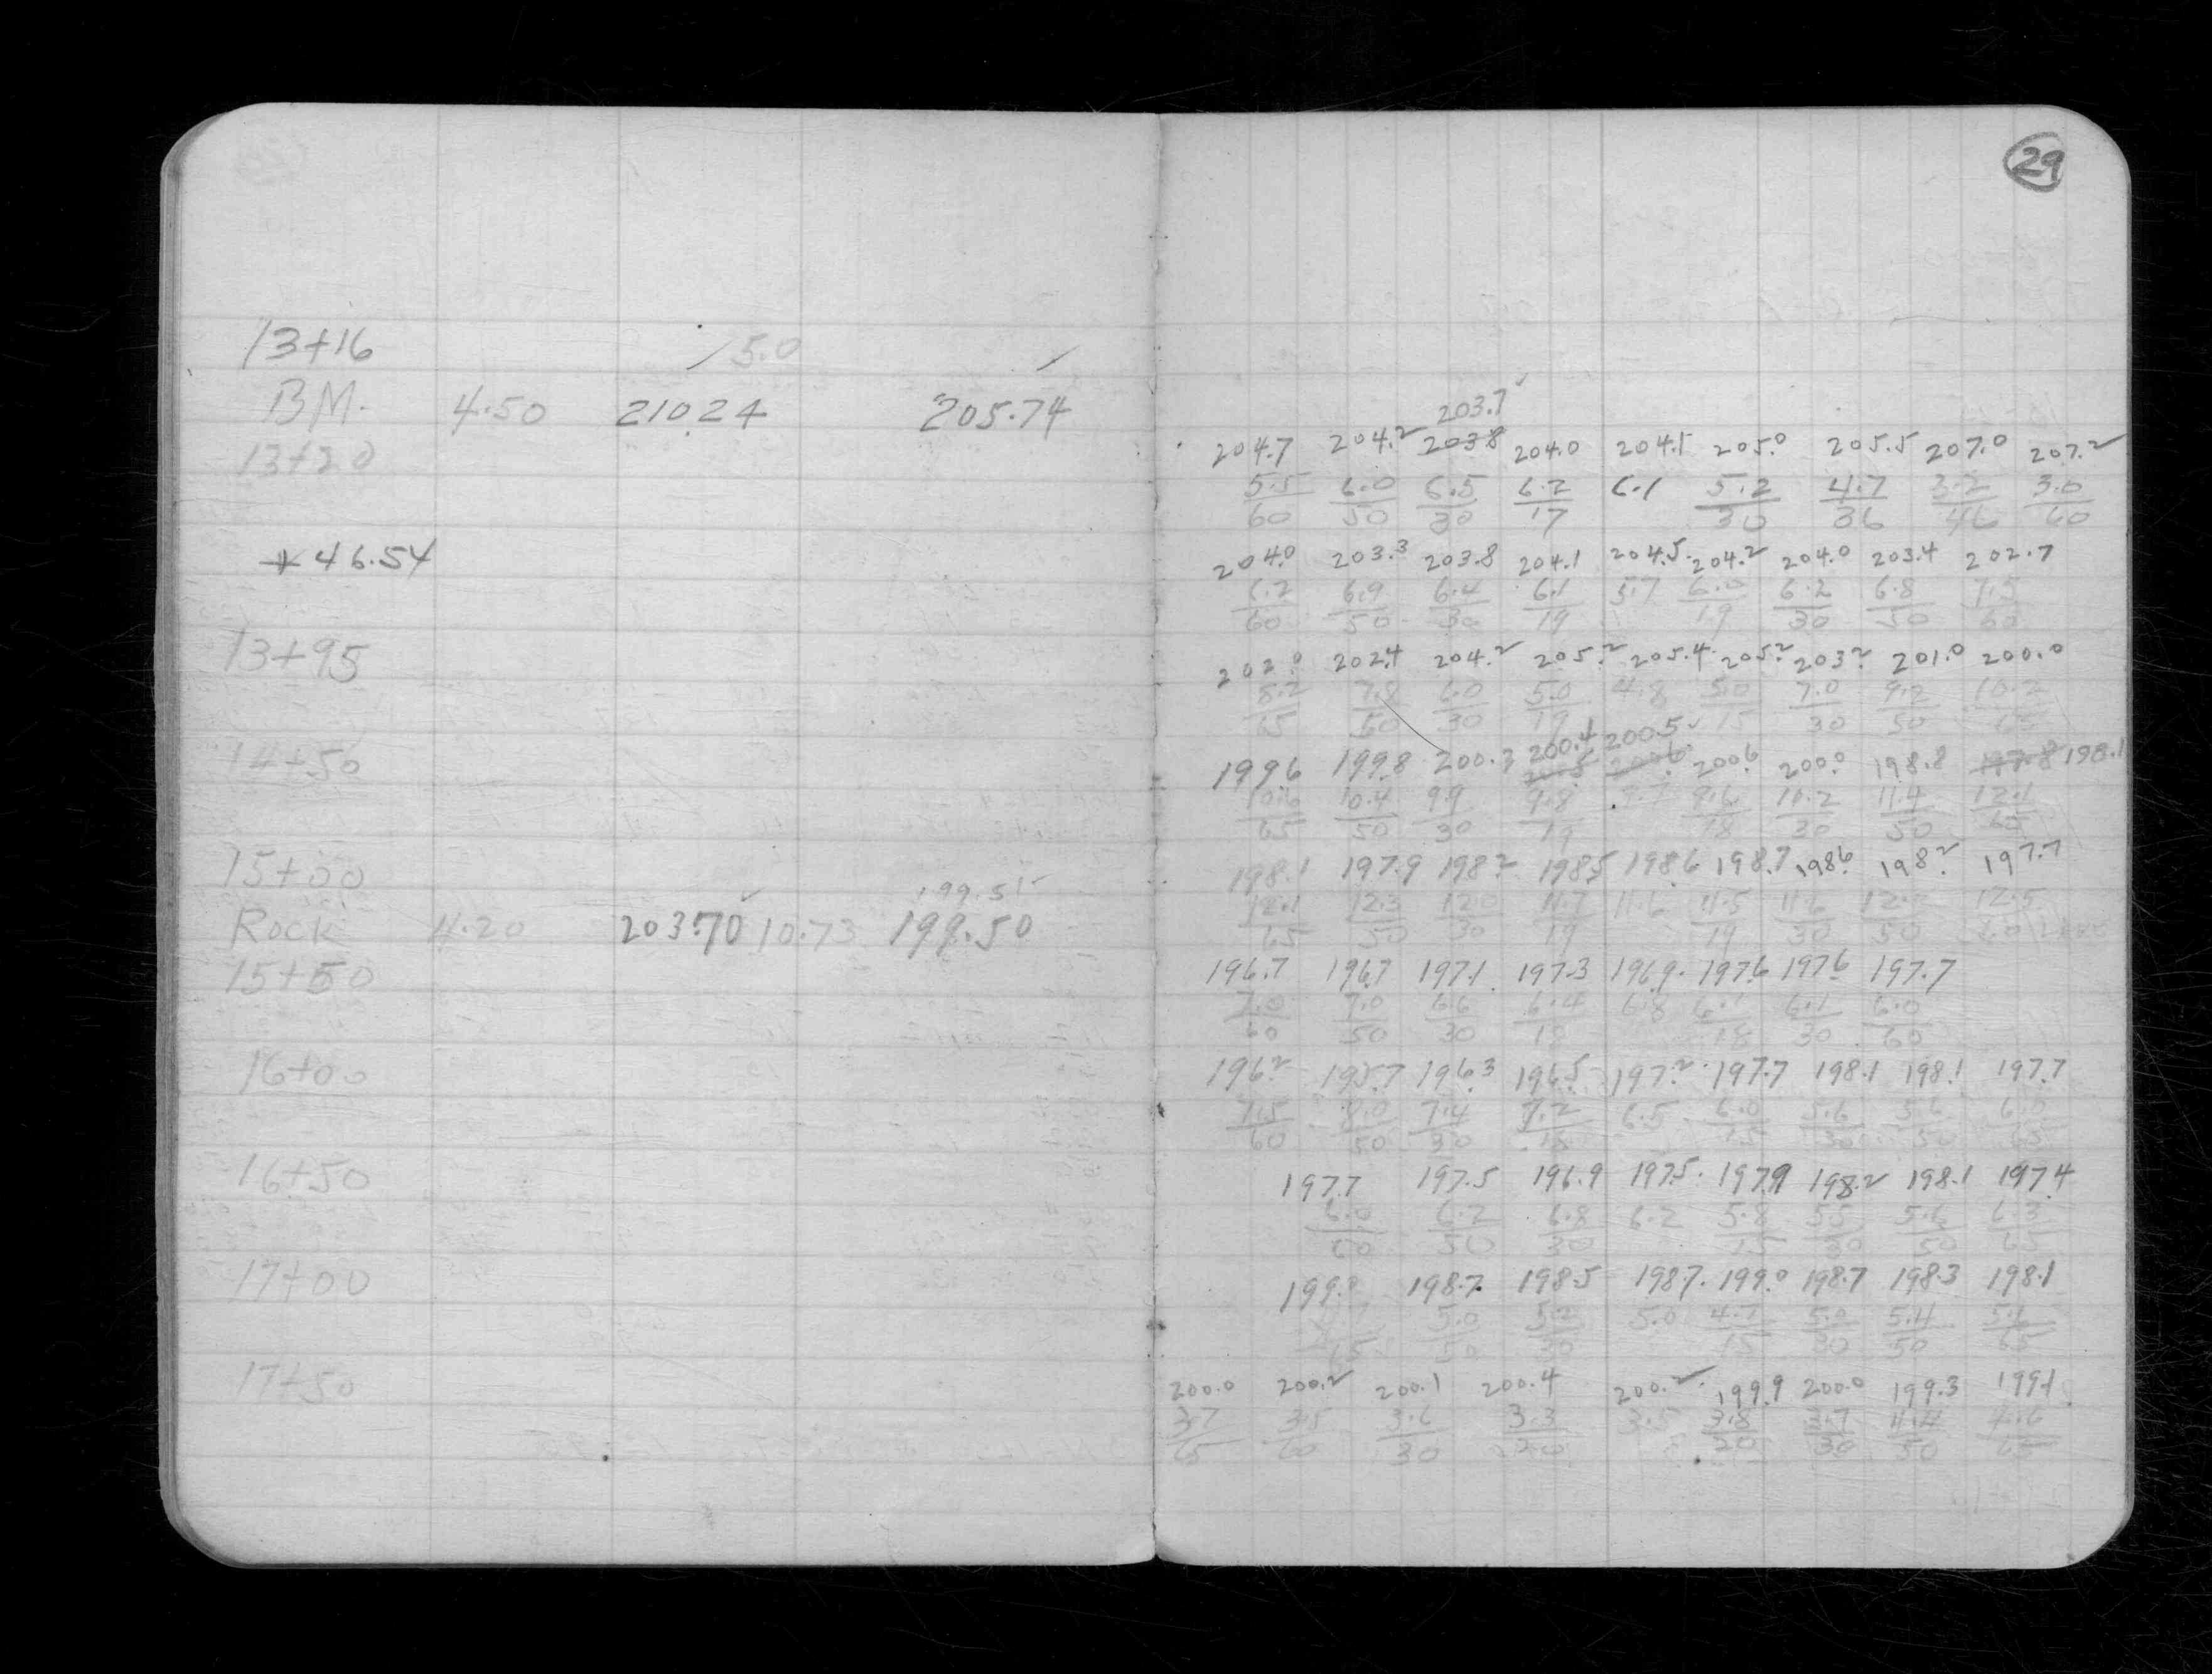 29
13+16 5.0
BM. 4.50 210.24 205.74
13+20
+46.54
13+95
14+50
15+00
199.51
Rock 4.20 203.70 10.73 199.50
15+50
16+00
16+50
17+00
17+50
203.7
204.7 204.2 203.8 204.0 204.1 205.0 205.5 207.0 207.2
5.5 6.0 6.5 6.2 6.1 5.2 4.7 3.2 3.0
60 50 30 17 30 36 46 60
204.0 203.3 203.8 204.1 204.5 204.2 204.0 203.4 202.7
6.2 6.9 6.4 6.1 5.7 6.0 6.2 6.8 7.5
60 50 30 19 19 30 50 60
202.0 202.4 204.2 205.2 205.4 205.2 203.2 201.0 200.0
8.2 7.8 6.0 5.0 4.8 5.0 7.0 9.2 10.2
65 50 30 19 15 30 50 65
200.4 200.5
199.6 199.8 200.3 200.6 200.0 198.8 197.8 198.1
10.6 10.4 9.9 9.8 9.7 9.6 10.2 11.4 12.1
65 50 30 19 18 30 50 60
198.1 197.9 198.2 198.5 198.6 198.7 198.6 198.2 197.7
12.1 12.3 12.0 11.7 11.6 11.5 11.6 12.0 12.5
65 50 30 19 19 30 50 60
196.7 196.7 197.1 197.3 196.9 197.6 197.6 197.7
7.0 7.0 6.6 6.4 6.8 6.1 6.1 6.0
60 50 30 18 30 60
196.2 195.7 196.3 196.5 197.2 197.7 198.1 198.1 197.7
7.5 8.0 7.4 7.2 6.5 6.0 5.6 5.6 6.0
60 50 30 15 15 30 50 65
197.7 197.5 196.9 197.5 197.9 198.2 198.1 197.4
6.0 6.2 6.8 6.2 5.8 5.5 5.6 6.3
60 50 30 15 30 50 65
199.0 198.7 198.5 198.7 199.0 198.7 198.3 198.1
5.0 5.2 5.0 4.7 5.0 5.4 5.6
65 50 30 15 30 50 65
200.0 200.2 200.1 200.4 200.2 199.9 200.0 199.3 199.1
3.7 3.5 3.6 3.3 3.5 3.8 3.7 4.4 4.6
65 60 30 20 20 30 50 65